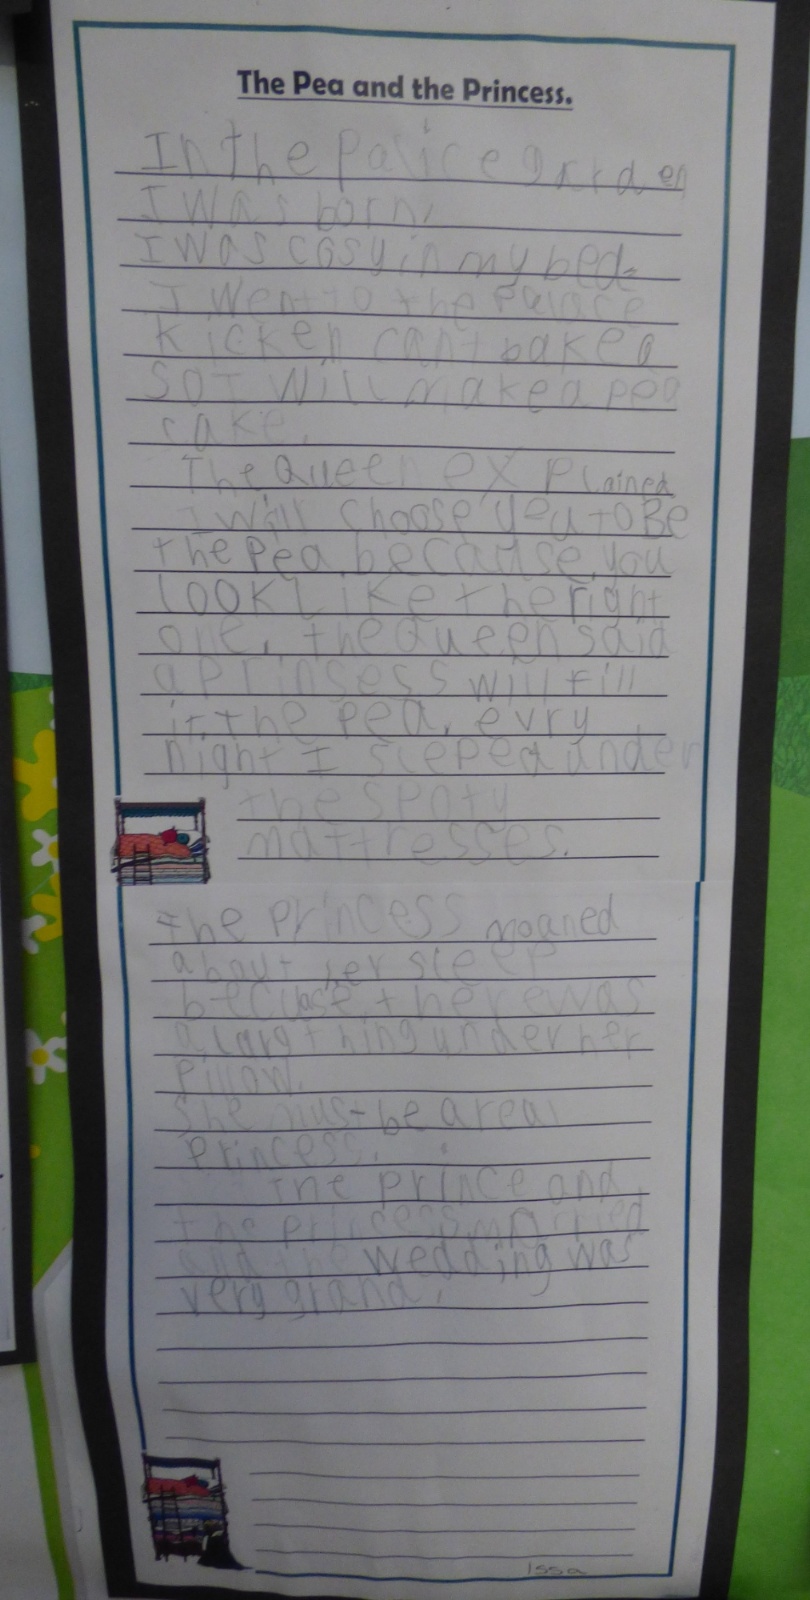 The Pea and the Princess.
In the palice garden
I was born,
I was cosy in my bed.
I went to the Palace
kicken cant bake a
so I will make a pea
cake.
The Queen explained
I will choose you to Be
the Pea because you
look like the right
one, the Queen said
a prinsess will fill
it. the pea, evry
night I sleped under
the spoty
mattresses.
the Princess moaned
about her sleep
because there was
a larg thing under her
pillow.
She must be a real
Princess.
The prince and
the princess married
and the wedding was
very grand.
Issa